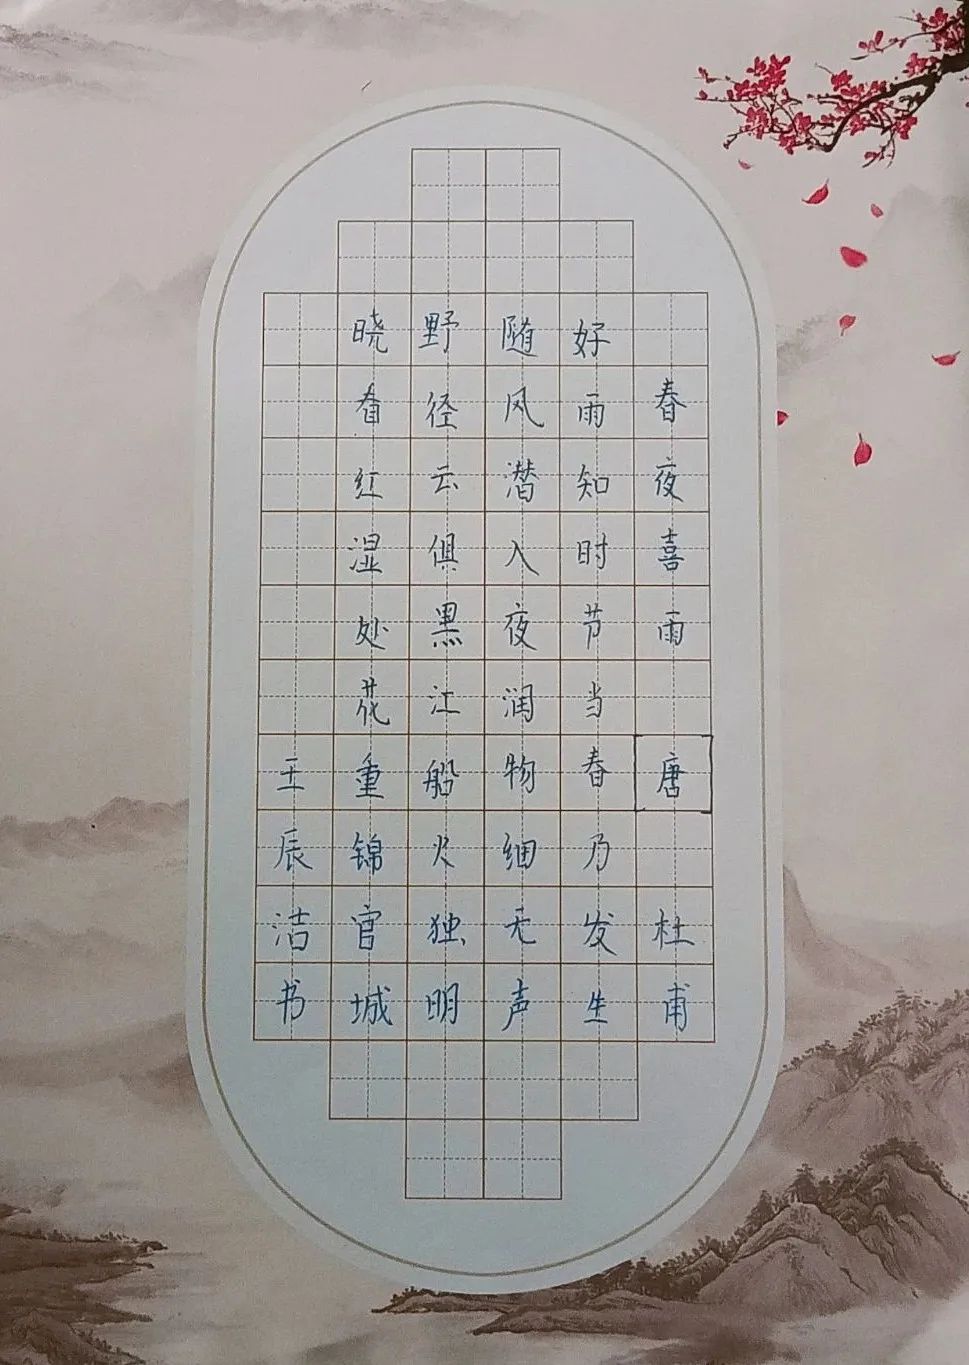 春夜喜雨 唐 杜甫
好雨知时节当春乃发生
随风潜入夜润物细无声
野径云俱黑江船火独明
晓看红湿处花重锦官城
王辰洁书